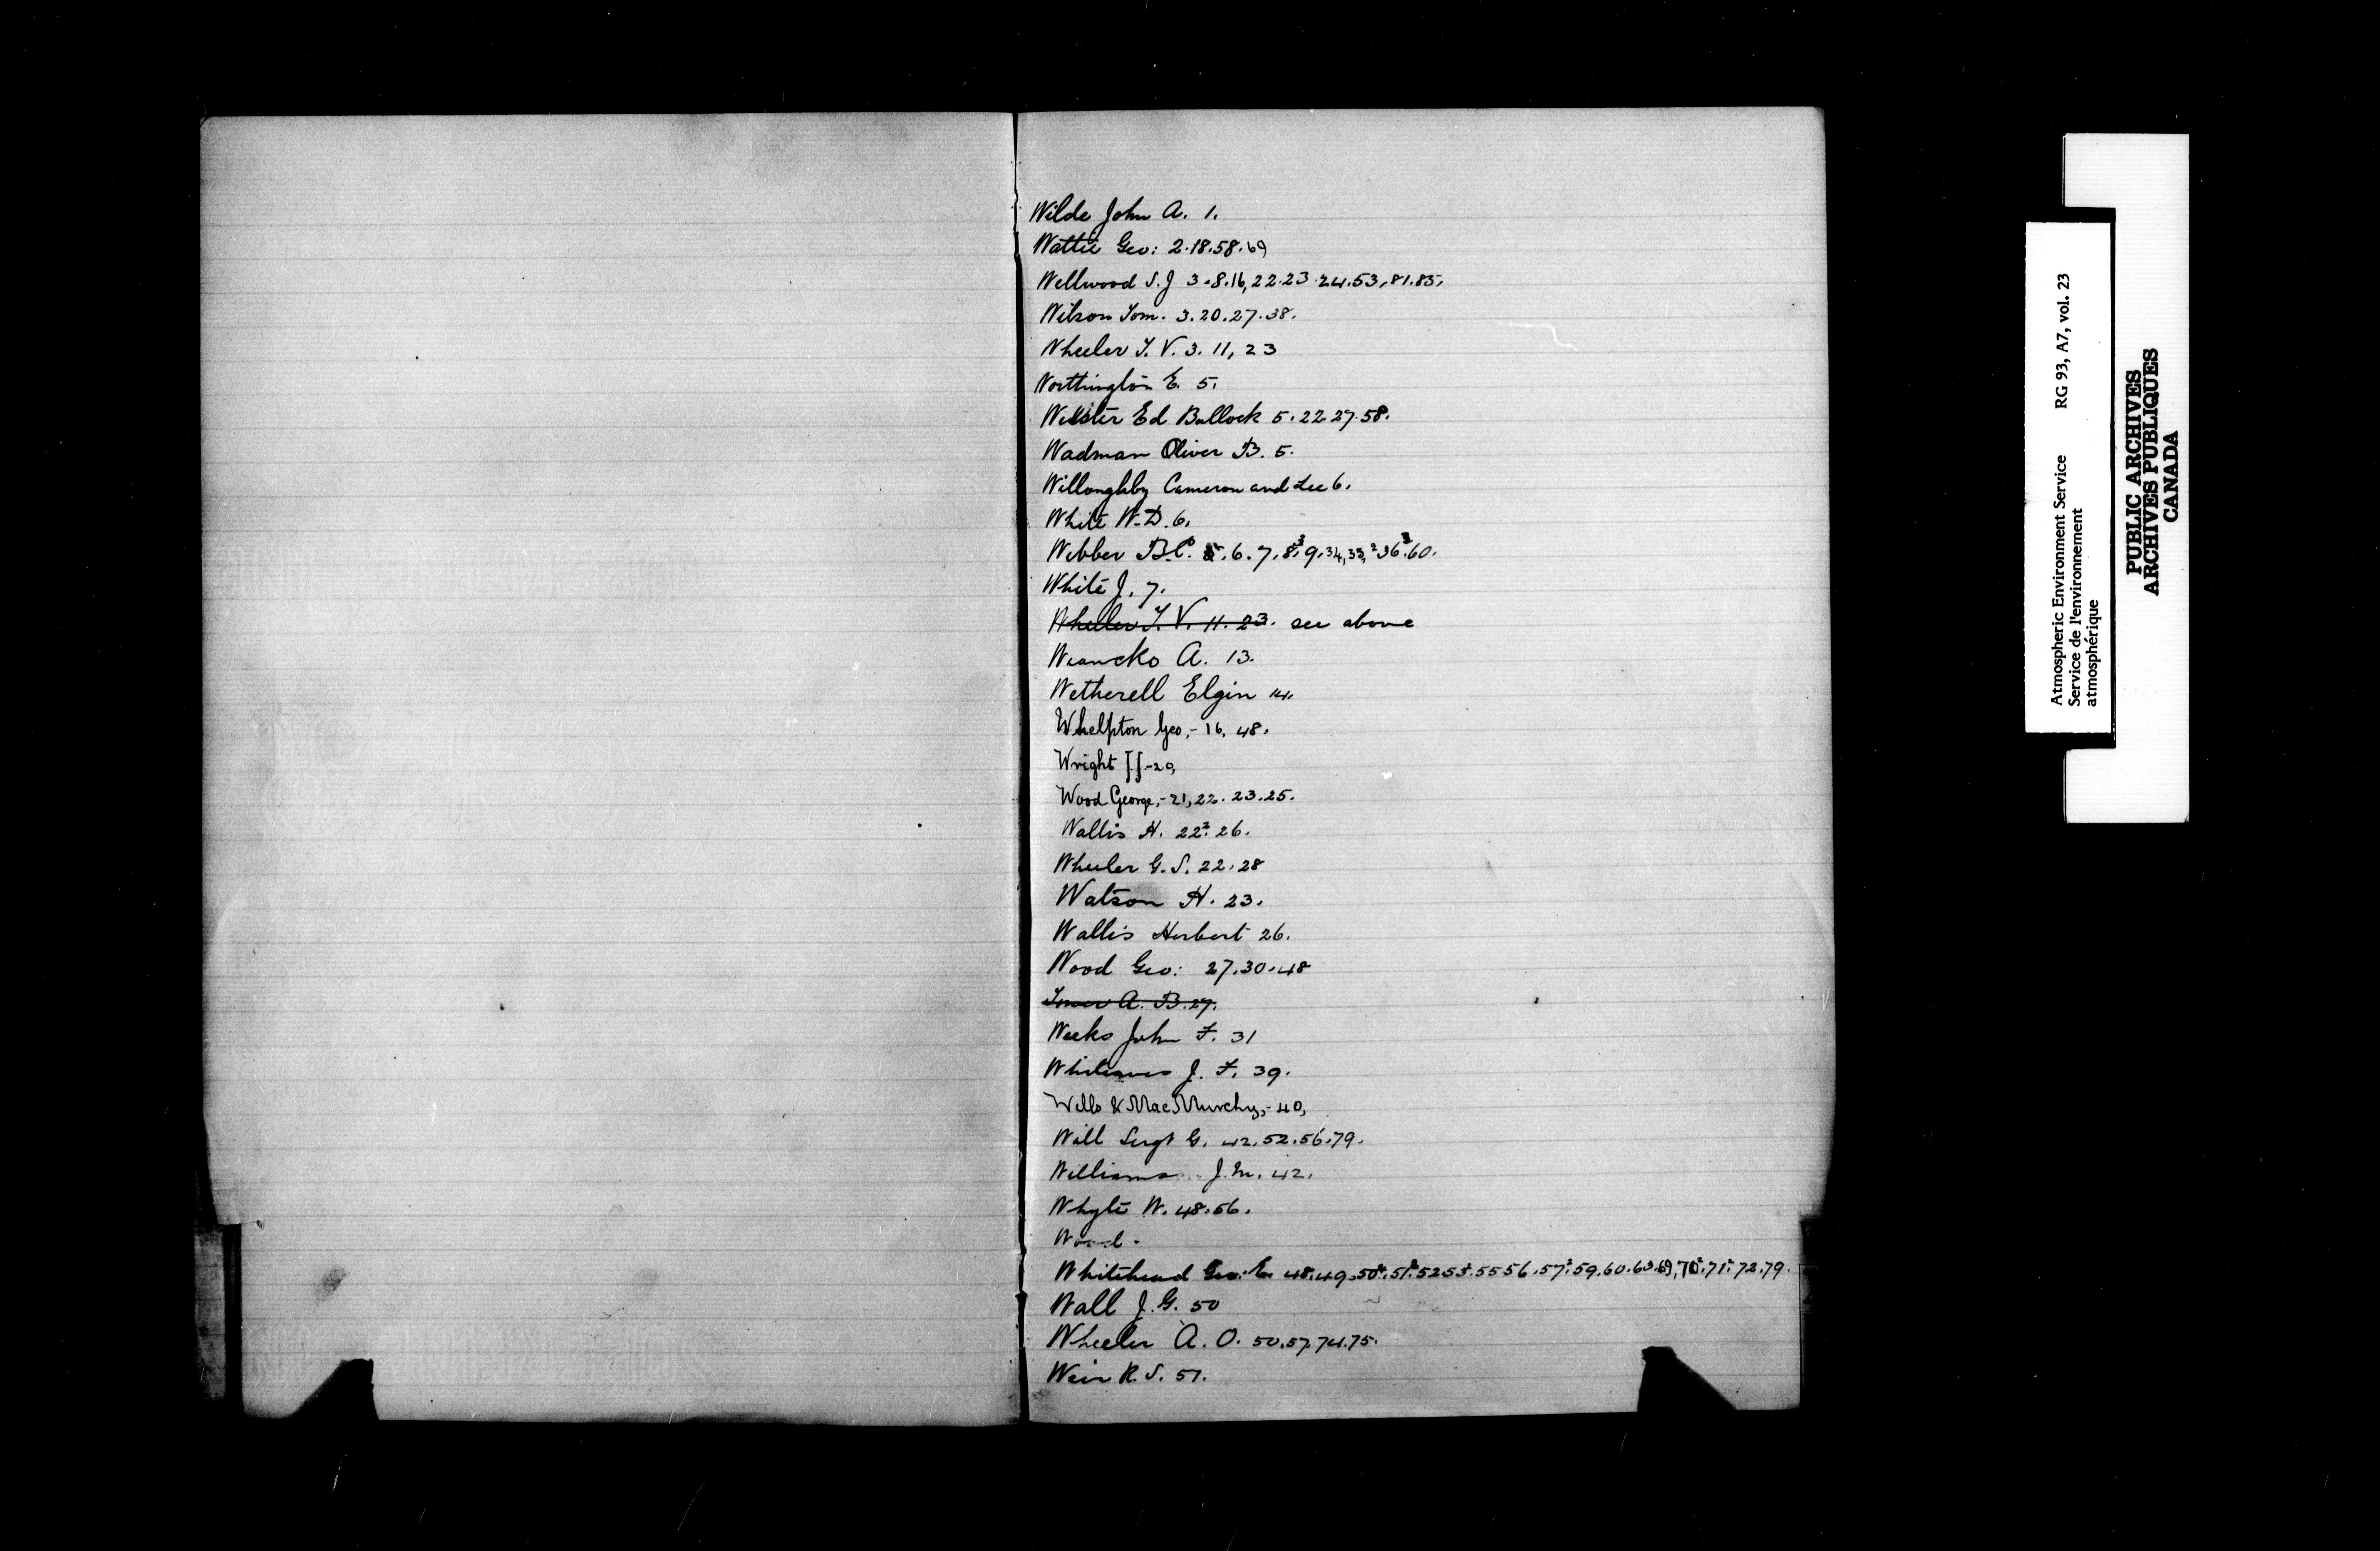 Wilde John A. 1.
Wattie Geo: 2.18.58.69
Wellwood S.J 3.8.16,22.23.24.53,81.83,
Wilson Tom. 3.20.27.38.
Wheeler T. V. 3. 11, 23
Worthington E. 5.
Webster Ed Bullock 5.22.27.58.
Wadman Oliver B. 5.
Willoughby Cameron and Lee 6.
White W.D. 6.
Webber B.C. 6.7,8³,9,34,33,²36³.60.
White J. 7.
Wheeler T. V. 11. 23. see above
Wiancko A. 13.
Wetherell Elgin 14.
Whelpton Geo,- 16. 48.
Wright J J-20,
Wood George,-21,22.23.25.
Wallis H. 22². 26.
Wheeler G.S. 22.28
Watson H. 23.
Wallis Herbert 26.
Wood Geo: 27.30.48
A. B. 27.
Weeks John F. 31
Whiteaves J. F. 39.
Wells & MacMurchy,-40,
Will Sergt G. 42.52.56.79.
Williams J.M. 42.
Whyte W. 48.56.
Whitehead Geo. E. 48.49.50.51.52.53.55.56.57².59.60.63.69,70.71.72.79.
Wall J.G. 50
Wheeler A.O. 50.57.74.75.
Weir R.S. 51.
Atmospheric Environment Service RG 93, A7, vol. 23
Service de l'environnement
atmosphérique
PUBLIC ARCHIVES
ARCHIVES PUBLIQUES
CANADA